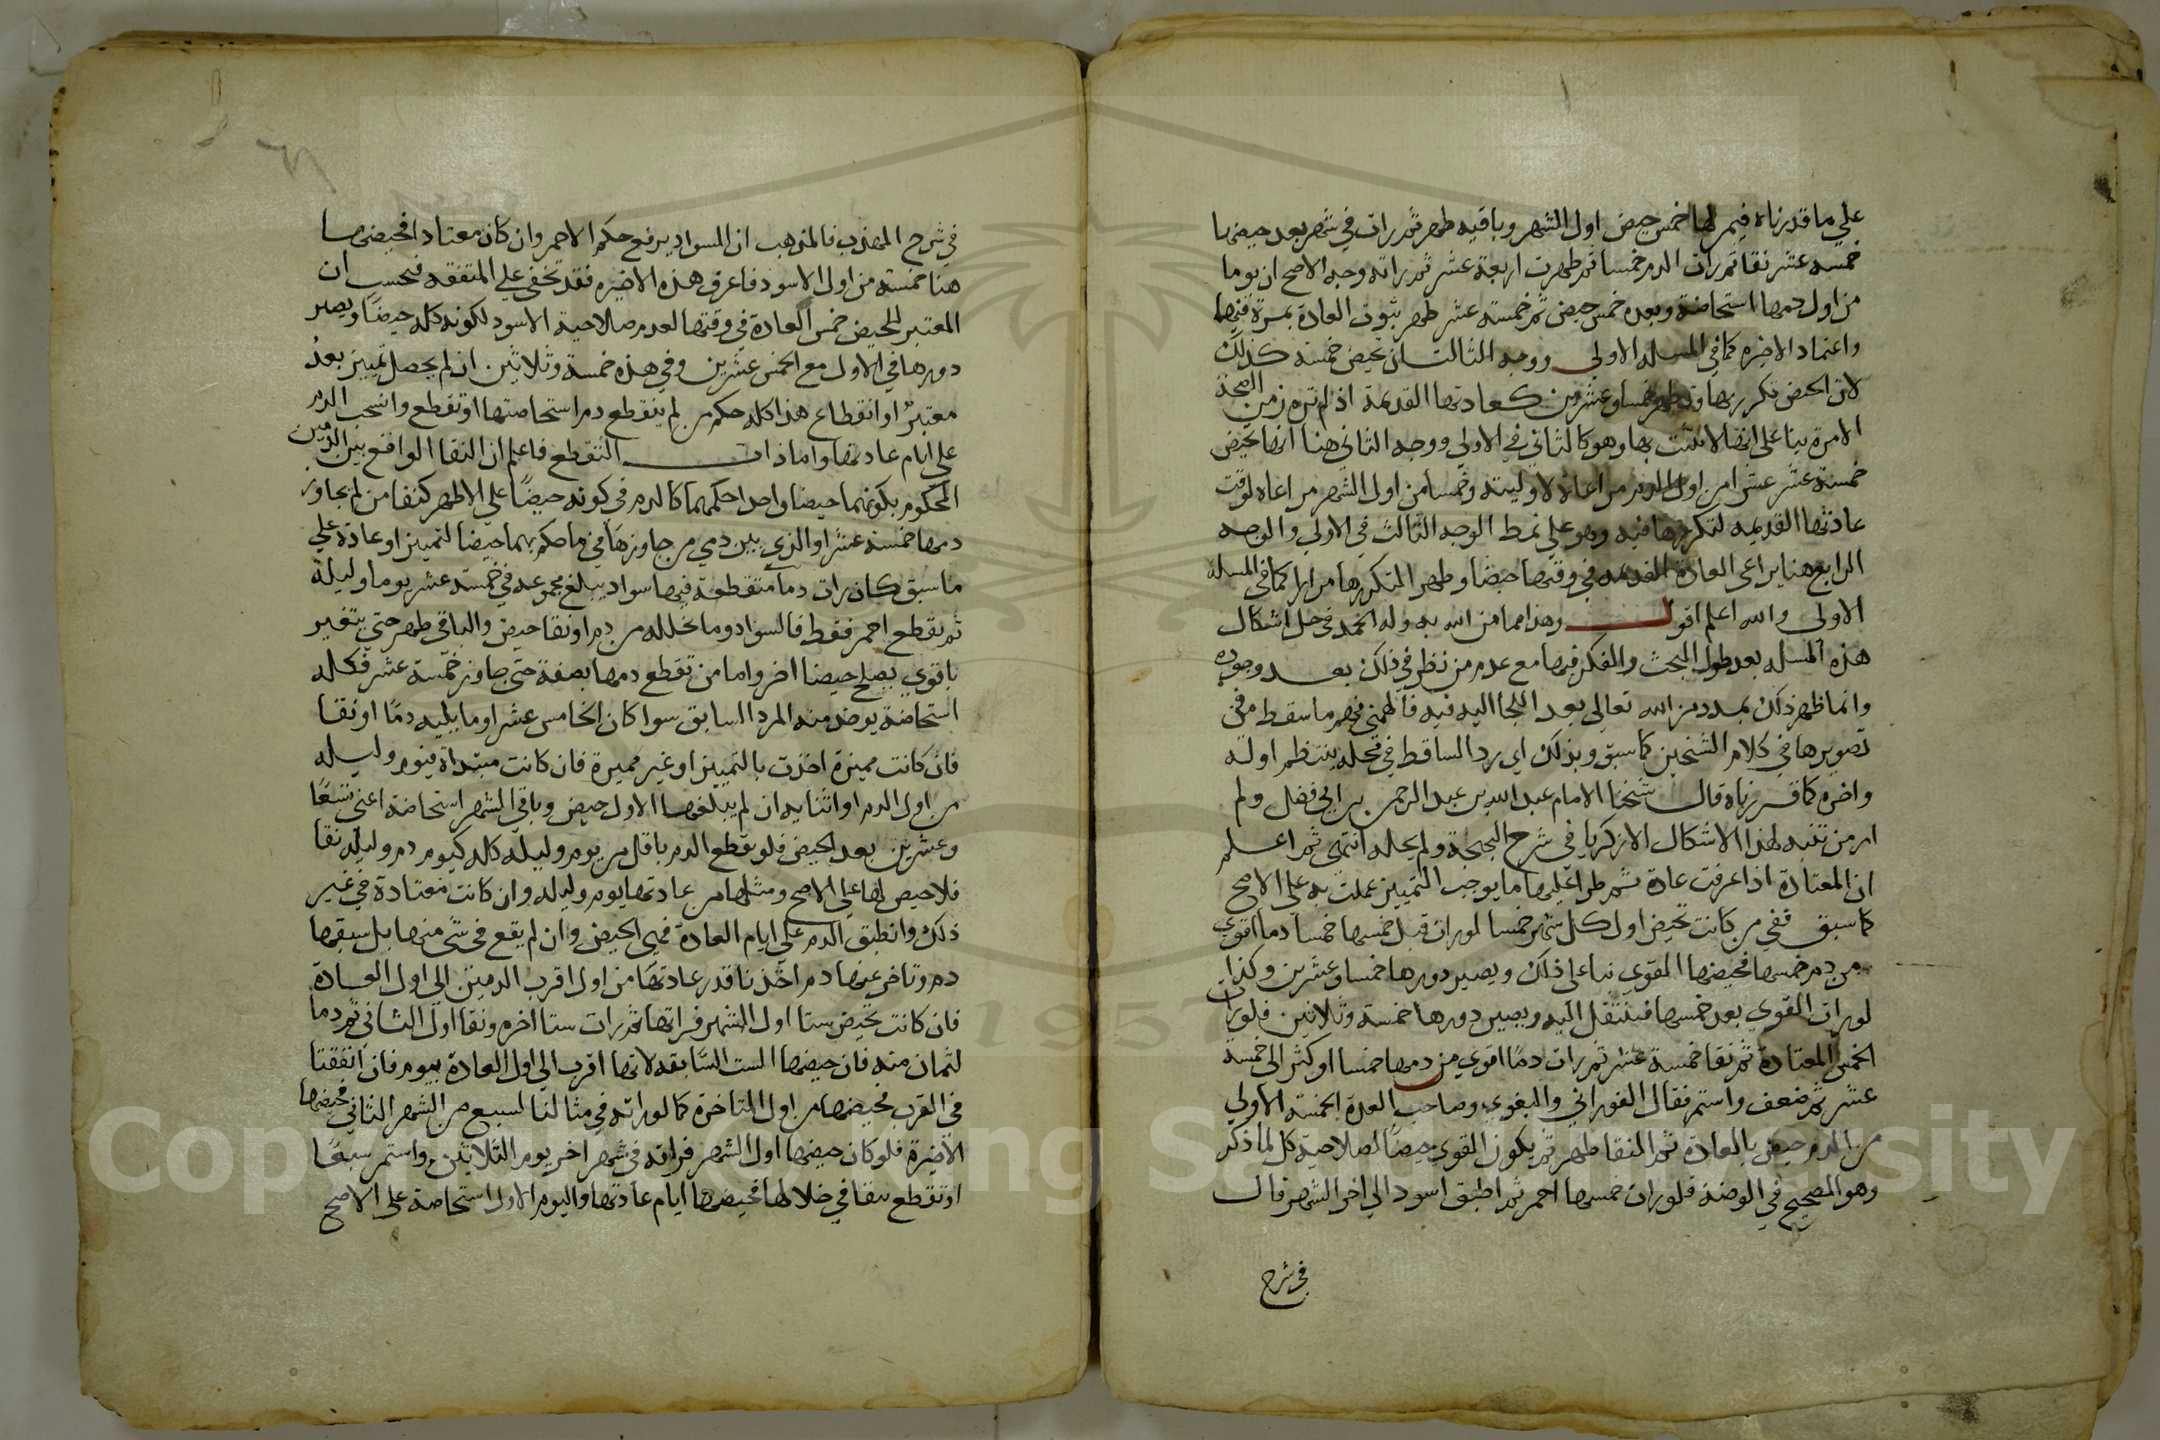 علي ما قدرناه فيمر لها خمس حيض اول الشهر وباقيه طهر ثم رات في شهر بعد حيضها
خمسه عشر نقا ثم رات الدم خمسا ثم طهرت اربعة عشر ثم راته وجه الاصح ان يوما
من اول دمها استحاضة وبعده خمس حيض ثم خمسة عشر طهر بثبوت العادة بمرة فيهما
واعتماد الاخيره كما في المسله الاولي ووجه الثالث ان تحيض خمسة كذلك
لان الحيض تكرر بها وتطهر خمسا وعشرين كعادتها القديمة اذ لم تره زمن الصحة
الا مرة بنا علي انها لا تثبت بها وهو كالثاني في الاولي ووجه الثاني هنا انها تحيض
خمسة عشر عشرا من اول الدم مراعاة لاوليته وخمسا من اول الشهر مراعاه لوقت
عادتها القديمه لتكررها فيه وهو علي نمط الوجه الثالث في الاولي والوجه
الرابع هنا يراعي العادة القديمه في وقتها حيضا وطهرا لتكررها مرارا كما في المسله
الاولي والله اعلم اقول وهذا مما من الله به وله الحمد في حل اشكال
هذه المسله بعد طول البحث والفكر فيها مع عدم من نظر في ذلك بعد وجوده
وانما ظهر ذلك بمدد من الله تعالي بعد اللجا اليه فيه فالهمني فهم ما سقط من
تصويرها في كلام الشيخين كما سبق وبذلك اي رد الساقط في محله ينتظم اوله
واخره كما قررناه قال شيخنا الامام عبد الله بن عبد الرحمن بن ابي فضل ولم
ار من تنبه لهذا الاشكال الا زكريا في شرح البهجة ولم يحله انتهي ثم اعلم
ان المعتادة اذا عرفت عادة ثم طرا عليها ما يوجب التمييز عملت به علي الاصح
كما سبق ففي من كانت تحيض اول كل شهر خمسا لو رات قبل خمسها خمسا دما اقوي
من دم خمسها فحيضها القوي بنا علي ذلك ويصير دورها خمسا وعشرين وكذا
لو رات القوي بعد خمسها فينتقل اليه ويصير دورها خمسة وثلاثين فلو رات
الخمس المعتادة ثم نقا خمسة عشر ثم رات دما اقوي من دمها خمسا او كثر الي خمسة
عشر ثم ضعف واستمر فقال الفوراني والبغوي وصاحب العدة الخمسة الاولي
من الدم حيض بالعادة ثم النقا طهر ثم يكون القوي حيضا لصلاحية كل لما ذكر
وهو الصحيح في الروضة فلو رات خمسها احمر ثم اطبق اسود الي اخر الشهر قال
في شرح
في شرح المهذب فالمذهب ان السواد يرفع حكم الاحمر وان كان معتادا فحيضها
هنا خمسة من اول الاسود فاعرف هذه الاخيره فقد تخفي علي المتفقه فيحسب ان
المعتبر للحيض خمس العادة في وقتها لعدم صلاحية الاسود لكونه كله حيضا ويصير
دورها في الاول مع الخمس عشرين وفي هذه خمسة وثلاثين ان لم يحصل تمييز بعد
معتبر او انقطاع هذا كله حكم من لم ينقطع دم استحاضتها او تقطع وانسحب الدم
علي ايام عادتها واما ذات التقطع فاعلم ان النقا الواقع بين الدمين
المحكوم بكونهما حيضا واحدا حكمهما كالدم في كونه حيضا علي الاظهر كنقا من لم يجاوز
دمها خمسة عشر او الذي بين دمي من جاوزها في ما حكم بهما حيضا لتمييز او عادة علي
ما سبق كان رات دما متقطعة فيها سواد يبلغ مجموعه في خمسة عشر يوما وليلة
ثم تقطع احمر فقط فالسواد وما تخلله من دم او نقا حيض والباقي طهر حتي يتغير
باقوي يصلح حيضا اخر واما من تقطع دمها بصفة حتي جاوز خمسة عشر فكله
استحاضة يوخذ منه المرد السابق سوا كان الخامس عشر او ما يليه دما او نقا
فان كانت مميزة اخذت بالتمييز او غير مميزة فان كانت مبتداة فيوم وليله
من اول الدم او اثنا يه ان لم يبلغها الاول حيض وباقي الشهر استحاضة اعني تسعا
وعشرين بعد الحيض فلو تقطع الدم باقل من يوم وليله كله كيوم دم وليله نقا
فلا حيض لها علي الاصح ومثلها من عادتها يوم وليله وان كانت معتادة في غير
ذلك وانطبق الدم علي ايام العادة فهي الحيض وان لم يقع في شي منها بل سبقها
دم وتاخر عنها دم اخذنا قدر عادتها من اول اقرب الدمين الي اول العادة
فان كانت تحيض ستا اول الشهر فراتها ثم رات ستا اخره ونقا اول الثاني ثم دما
لثمان منه فان حيضها الست السابقه لانها اقرب الي اول العادة بيوم فان اتفقتا
في القرب فحيضها من اول المتاخرة كما لو راته في مثالنا لسبع من الشهر الثاني فحيضها
الاخيرة فلو كان حيضها اول الشهر فراته في شهر اخر يوم الثلاثين واستمر سبعا
او تقطع بنقا في خلالها فحيضها ايام عادتها واليوم الاول استحاضة علي الاصح
Copy King Saud University
1957